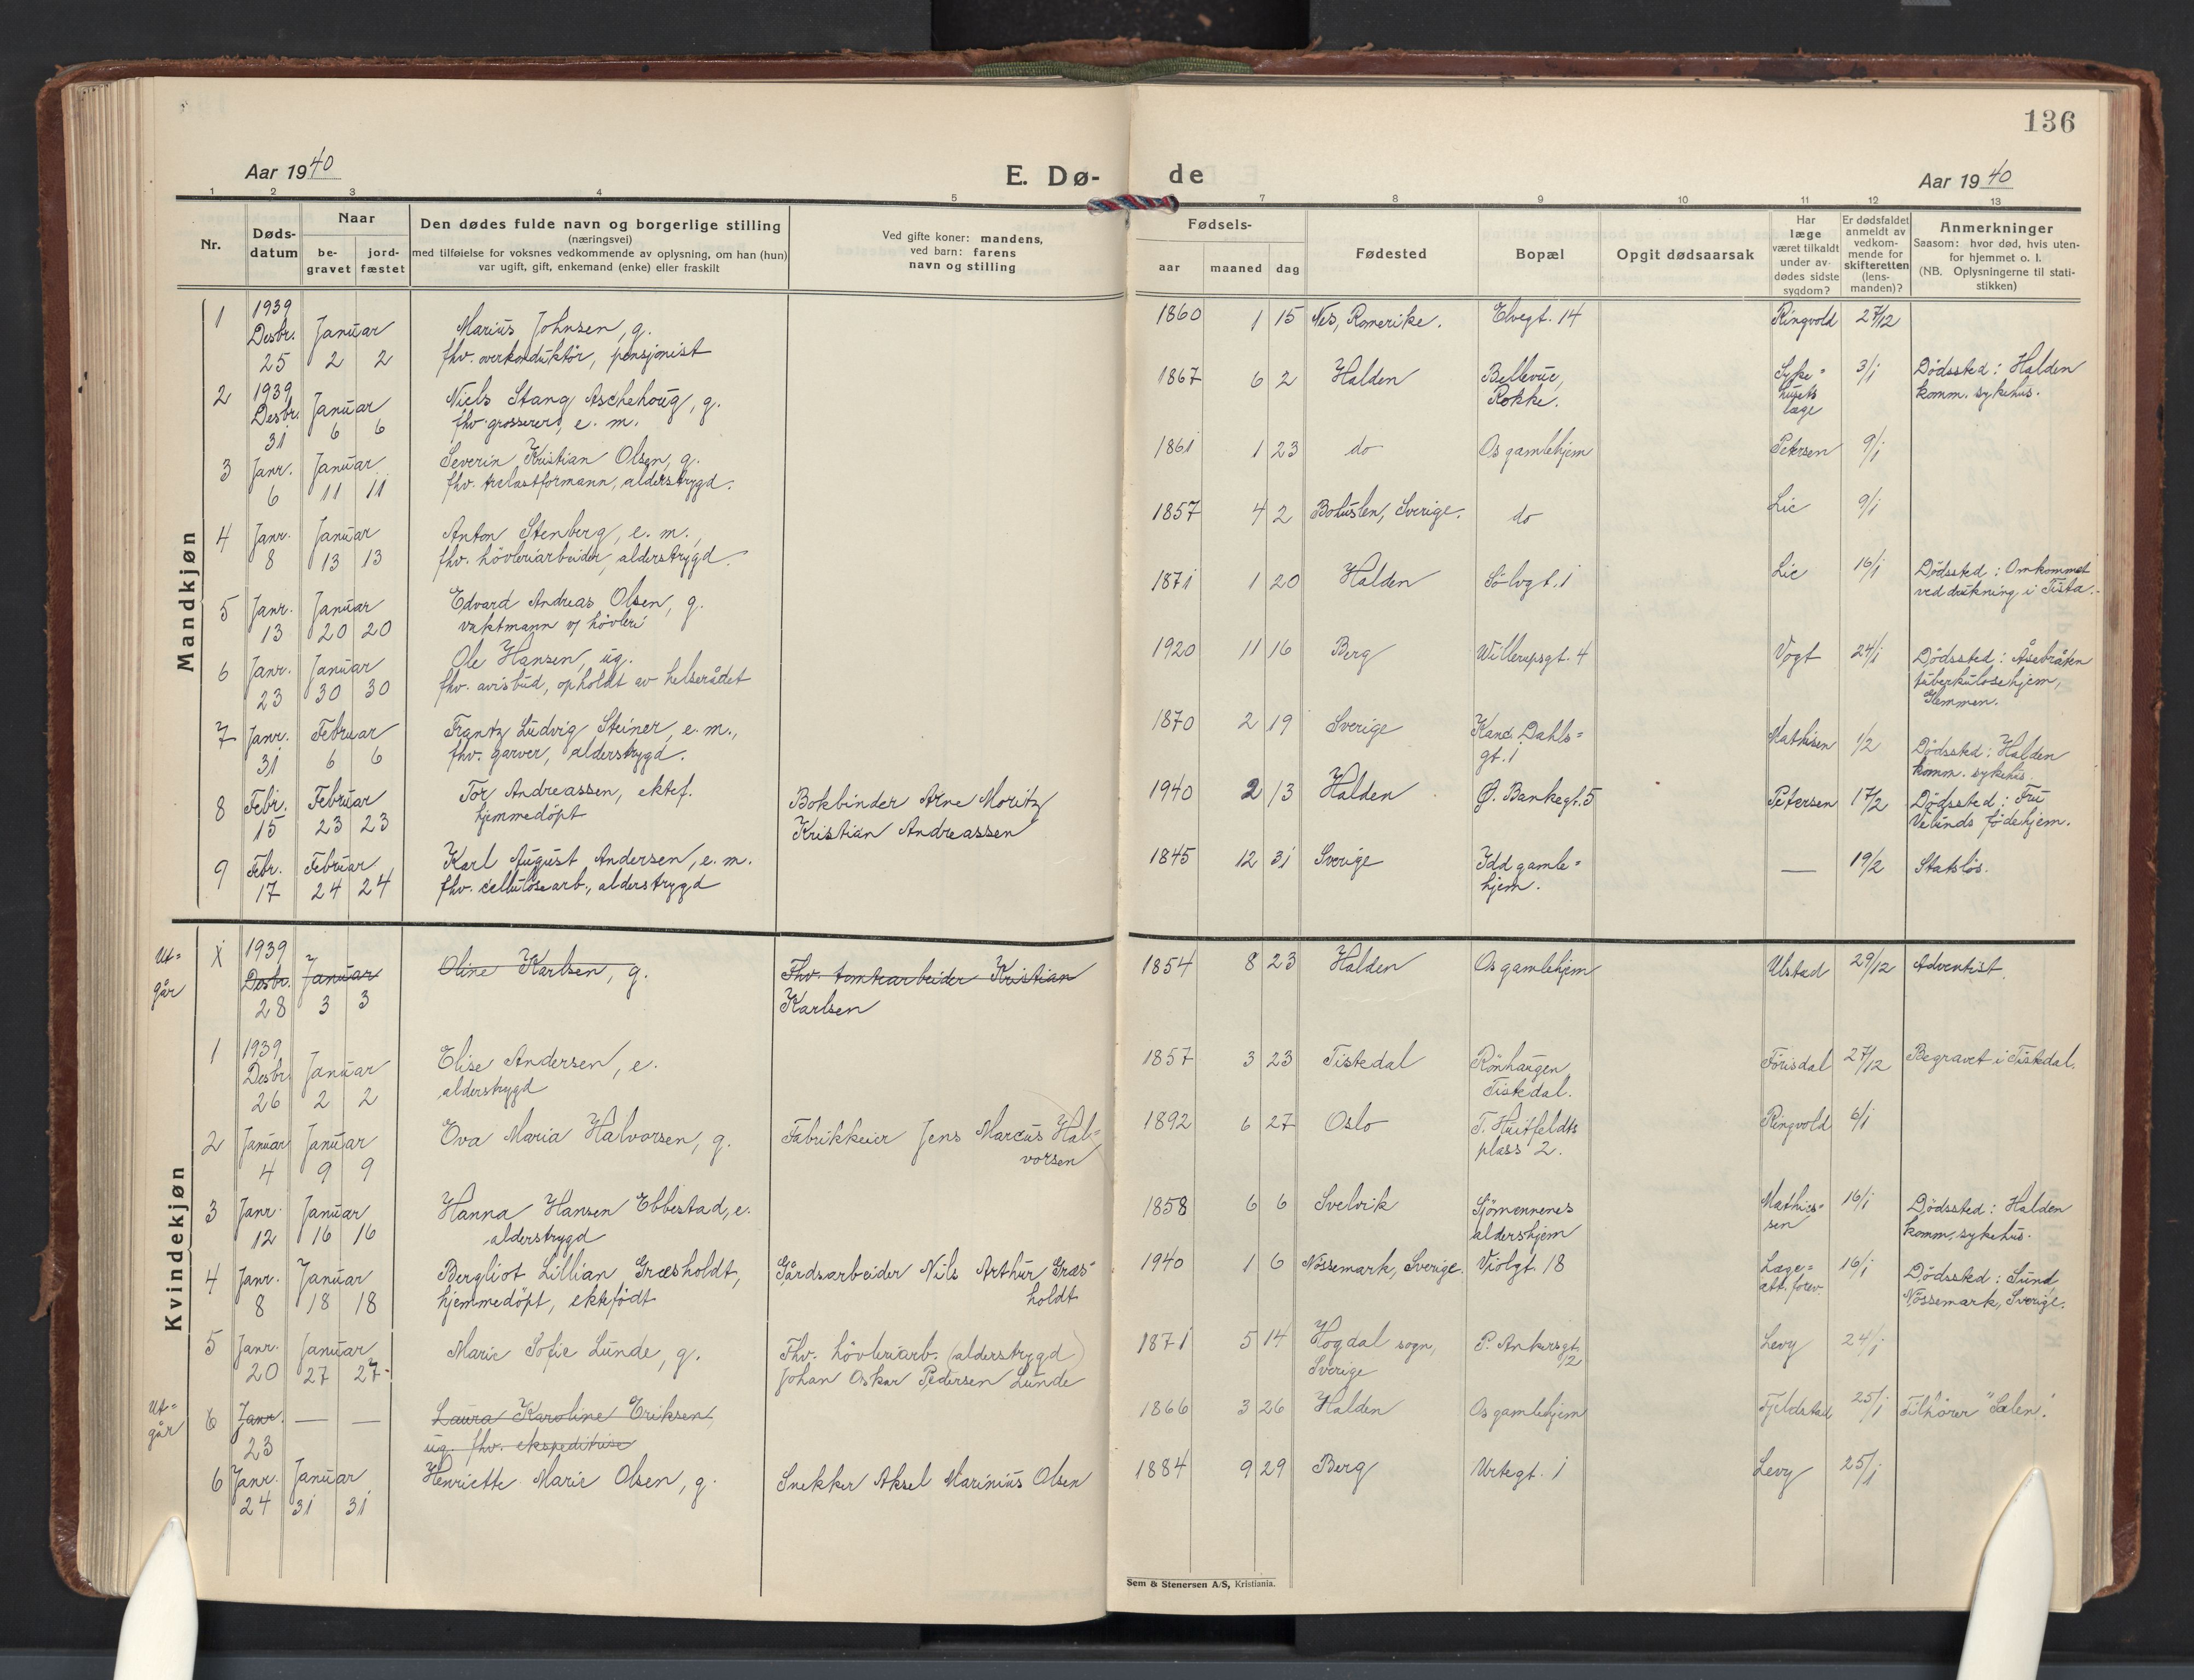 136
Aar 1940
E. Dø-
de
Aar 1940
1 2 3 4 5 7 8 9 10 11 12 13
Nr.
Døds-
datum
Naar
be-
gravet
jord-
fæstet
Den dødes fulde navn og borgerlige stilling
(næringsvei)
med tilføielse for voksnes vedkommende av oplysning, om han (hun)
var ugift, gift, enkemand (enke) eller fraskilt
Ved gifte koner: mandens,
ved barn: farens
navn og stilling
Fødsels-
aar maaned dag
Fødested
Bopæl
Opgit dødsaarsak
Har
læge
været tilkaldt
under av-
dødes sidste
sygdom?
Er dødsfaldet
anmeldt av
vedkom-
mende for
skifteretten
(lens-
manden)?
Anmerkninger
Saasom: hvor død, hvis uten-
for hjemmet o. l.
(NB. Oplysningerne til stati-
stikken)
Mandkjøn
1 1939 Desbr. 25 Januar 2 2
Marius Johnsen, g.
fhv. overkonduktör, pensjonist
1860 1 15 Nes, Romerike. Elvegt. 14 Ringvold 27/12
2 1939 Desbr. 31 Januar 6 6
Niels Stang Aschehoug, g.
fhv. grosserer, e. m.
1867 6 2 Halden Bellevue,
Rokke.
Syke=
husets
læge
3/1 Dödssted: Halden
komm. sykehus.
3 Janr. 6 Januar 11 11
Severin Kristian Olsen, g.
fhv. trelastformann, alderstrygd.
1861 1 23 do Os gamlehjem Petersen 9/1
4 Janr. 8 Januar 13 13
Anton Stenberg, e. m.,
fhv. hövleriarbeider, alderstrygd.
1857 4 2 Bohuslen, Sverige. do Lie 9/1
5 Janr. 13 Januar 20 20
Edvard Andreas Olsen, g.
vaktmann v/ hövleri
1871 1 20 Halden Sölvgt. 1 Lie 16/1 Dödssted: Omkommet
ved drukning i Tista.
6 Janr. 23 Januar 30 30
Ole Hansen, ug.
fhv. avisbud, opholdt av helserådet
1920 11 16 Berg Willerupsgt. 4 Vogt 24/1 Dödssted: Åsebråten
tuberkulosehjem,
Glemmen.
7 Janr. 31 Februar 6 6
Frantz Ludvig Steiner, e. m.,
fhv. garver, alderstrygd.
1870 2 19 Sverige Kand. Dahls=
gt. 1
Mathisen 1/2 Dödssted: Halden
komm. sykehus.
8 Febr. 15 Februar 23 23
Tor Andreassen, ektef.
hjemmedöpt
Bokbinder Arne Moritz
Kristian Andreassen
1940 2 13 Halden Ø. Bankegt. 5 Petersen 17/2 Dödssted: Fru
Velunds födehjem.
9 Febr. 17 Februar 24 24
Karl August Andersen, e. m.
fhv. cellulosearb., alderstrygd
1845 12 31 Sverige Idd gamle=
hjem.
— 19/2 Statslös.
Kvindekjøn
Ut=
går
X 1939 Desbr. 28 Januar 3 3
Oline Karlsen, g.
Fhv. tomtearbeider Kristian
Karlsen
1854 8 23 Halden Os gamlehjem Ulstad 29/12 Adventist.
1 1939 Desbr. 26 Januar 2 2
Elise Andersen, e.
alderstrygd
1857 3 23 Tistedal Rönhaugen,
Tistedal.
Förisdal 27/12 Begravet i Tistedal.
2 Januar 4 Januar 9 9
Eva Maria Halvorsen, g.
Fabrikkeier Jens Marcus Hal=
vorsen
1892 6 27 Oslo T. Huitfeldts
plass 2.
Ringvold 6/1
3 Janr. 12 Januar 16 16
Hanna Hansen Ebbestad, e.
alderstrygd
1858 6 6 Svelvik Sjömennenes
aldershjem
Mathies=
sen
16/1 Dödssted: Halden
komm. sykehus.
4 Janr. 8 Januar 18 18
Bergliot Lillian Græsholdt,
hjemmedöpt, ektefödt
Gårdsarbeider Nils Arthur Græs=
holdt
1940 1 6 Nössemark, Sverige. Violgt. 18 Læge=
att. forev.
16/1 Dödssted: Sund,
Nössemark, Sverige.
5 Janr. 20 Januar 27 27
Marie Sofie Lunde, g.
Fhv. hövleriarb. (alderstrygd)
Johan Oskar Pedersen Lunde
1871 5 14 Hogdal sogn,
Sverige
P. Ankersgt.
12
Levy 24/1
Ut=
går
6 Janr. 23 — —
Laura Karoline Eriksen,
ug. fhv. ekspeditrise
1866 3 26 Halden Os gamlehjem Fjeldstad 25/1 Tilhörer "Salen".
6 Janr. 24 Januar 31 31
Henriette Marie Olsen, g.
Snekker Aksel Marinius Olsen
1884 9 29 Berg Urtegt. 1 Levy 25/1
Sem & Stenersen A/S, Kristiania.